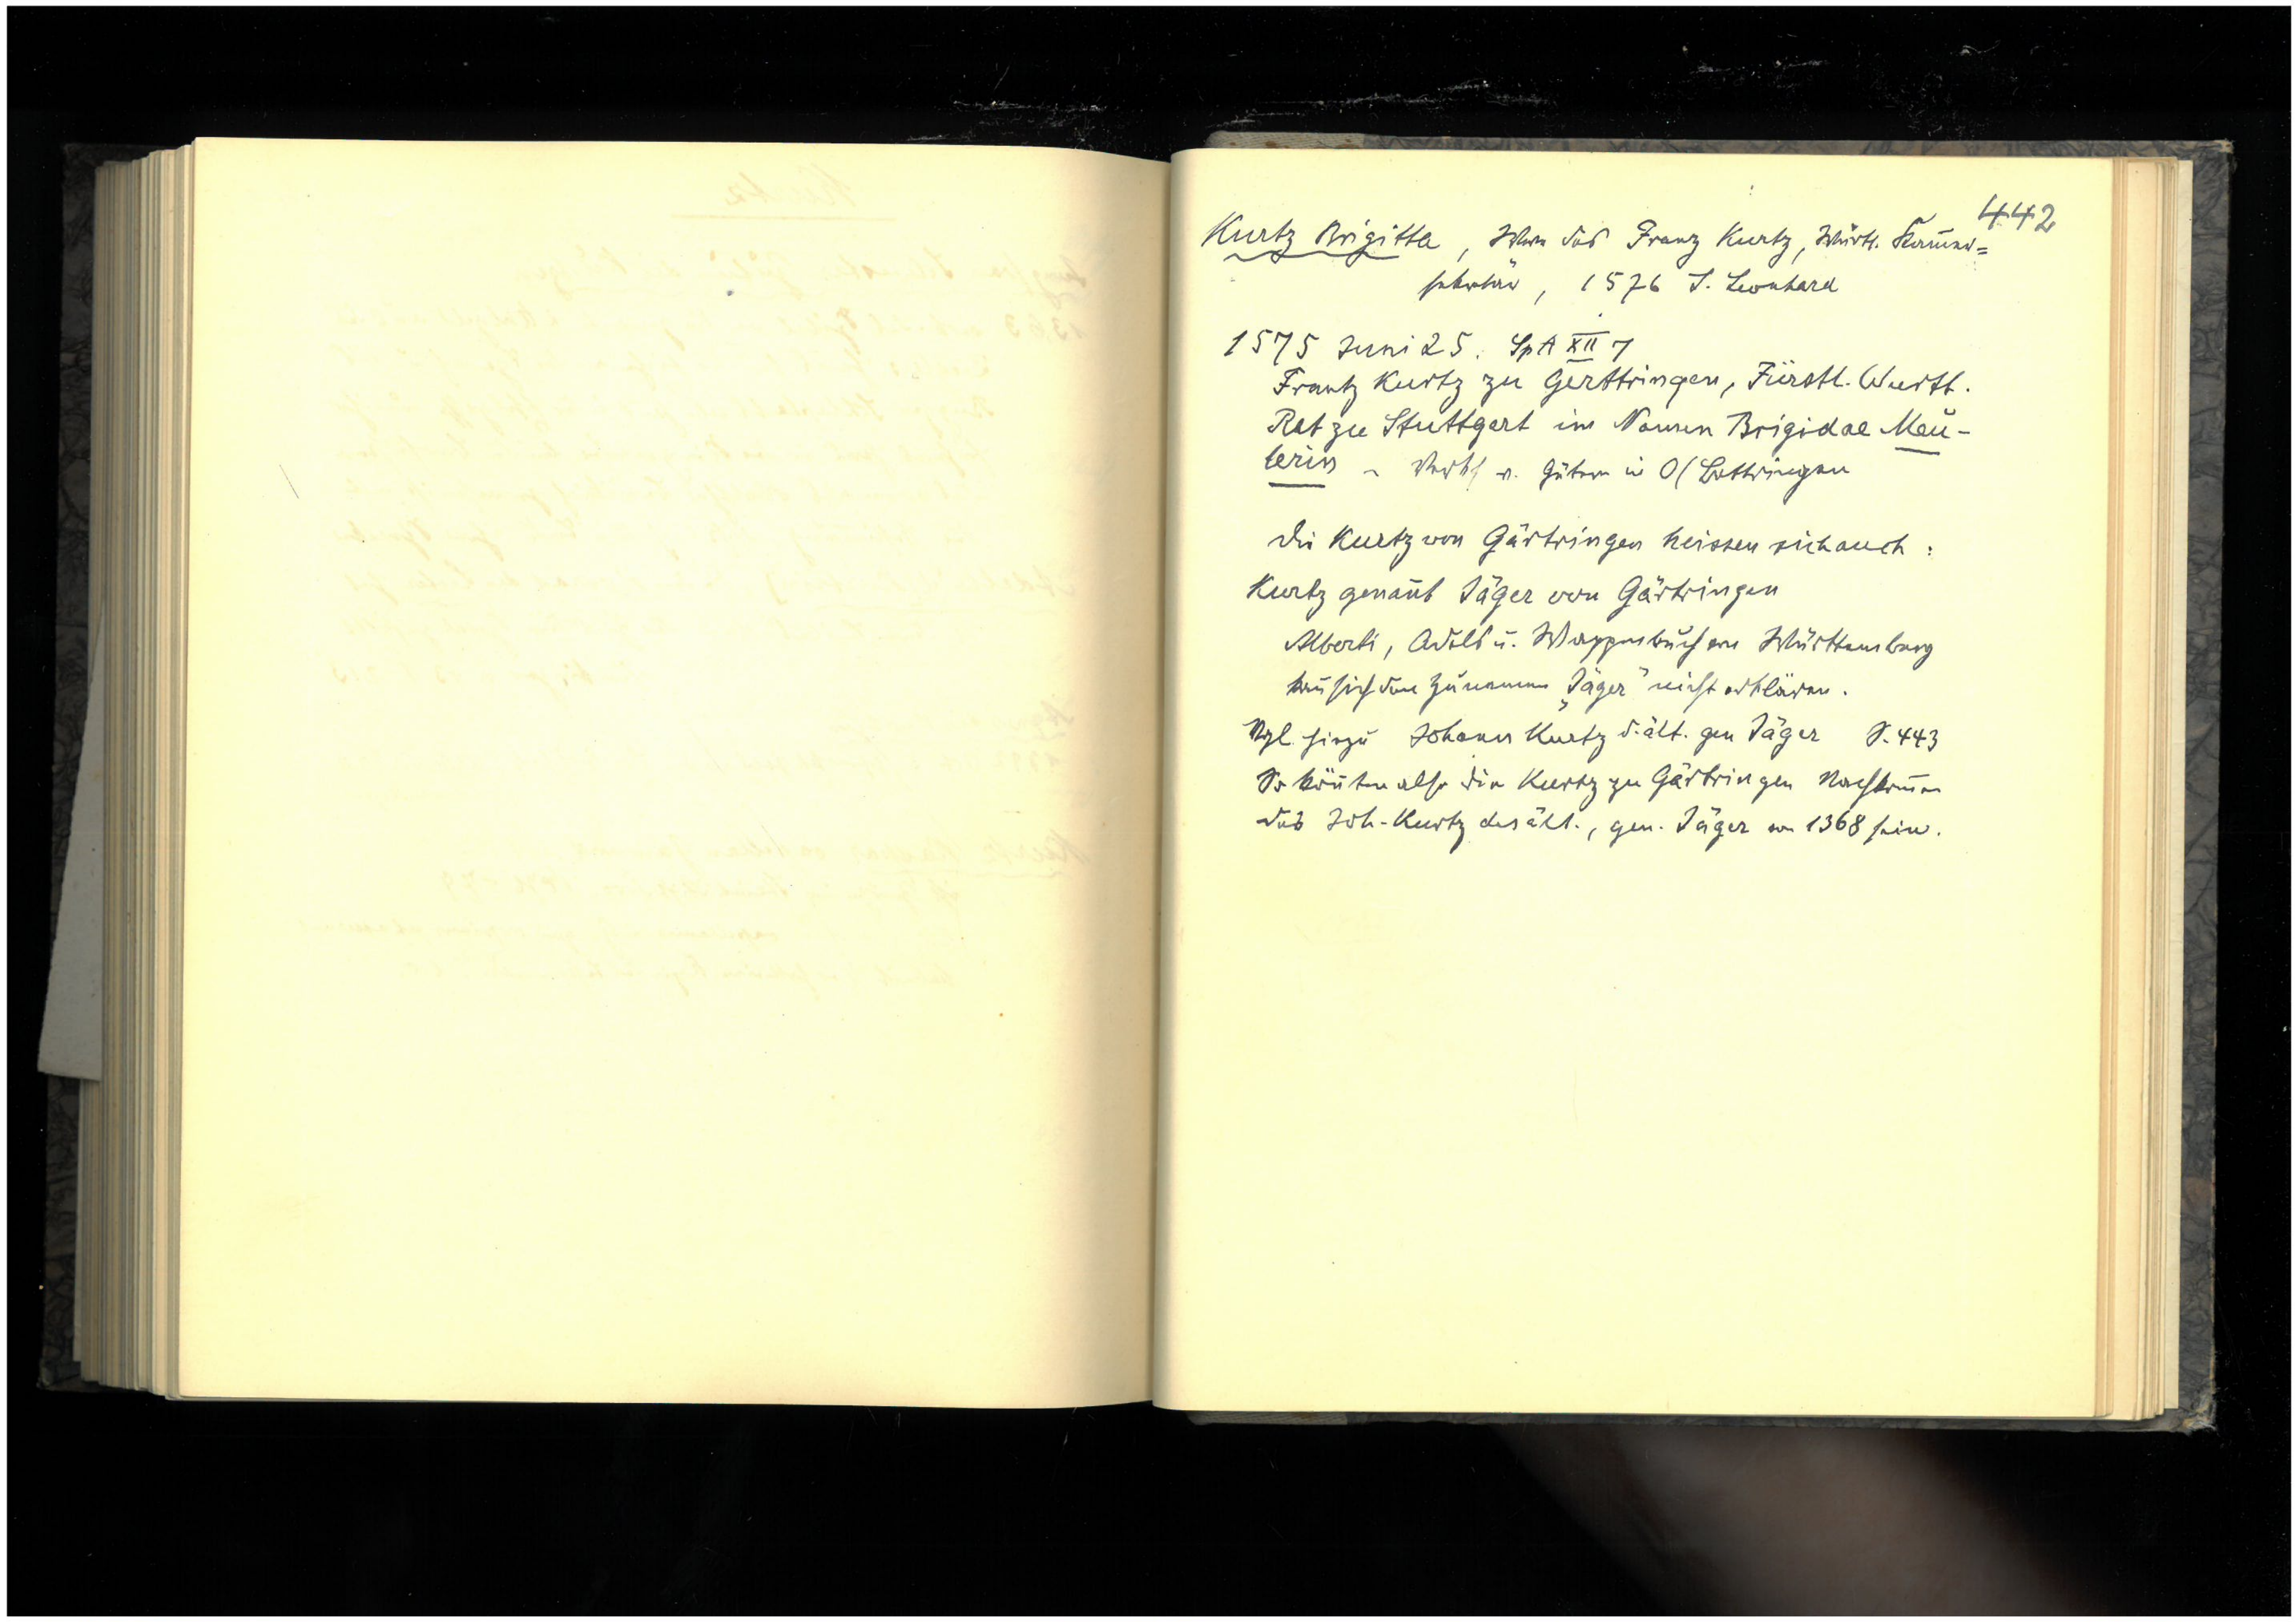 442
Kurtz Brigitta, Wwe des Franz Kurtz, Württ. Kam̄er=
sekretär, 1576 S. Leonhard
1575 Juni 25. SpA XII 7
Frantz Kurtz zu Gerttringen, Fürstl. Wurtt.
Rat zu Stuttgart im Namen Brigidae Meu-
terin - Verkf v. Gütern in O/Bettringen
Die Kurtz von Gärtringen heissen sich auch:
Kurtz genan̄t Jäger von Gärtringen
Alberti, Adels u. Wappenbuch von Württemberg
kan̄ sich den Zunamen „Jäger" nicht erklären.
Vgl. hiezu Johann Kurtz d. ält. gen Jäger S. 443
So kön̄ten also die Kurtz zu Gärtringen Nachkom̄en
des Joh. Kurtz des ält., gen. Jäger von 1368 sein.